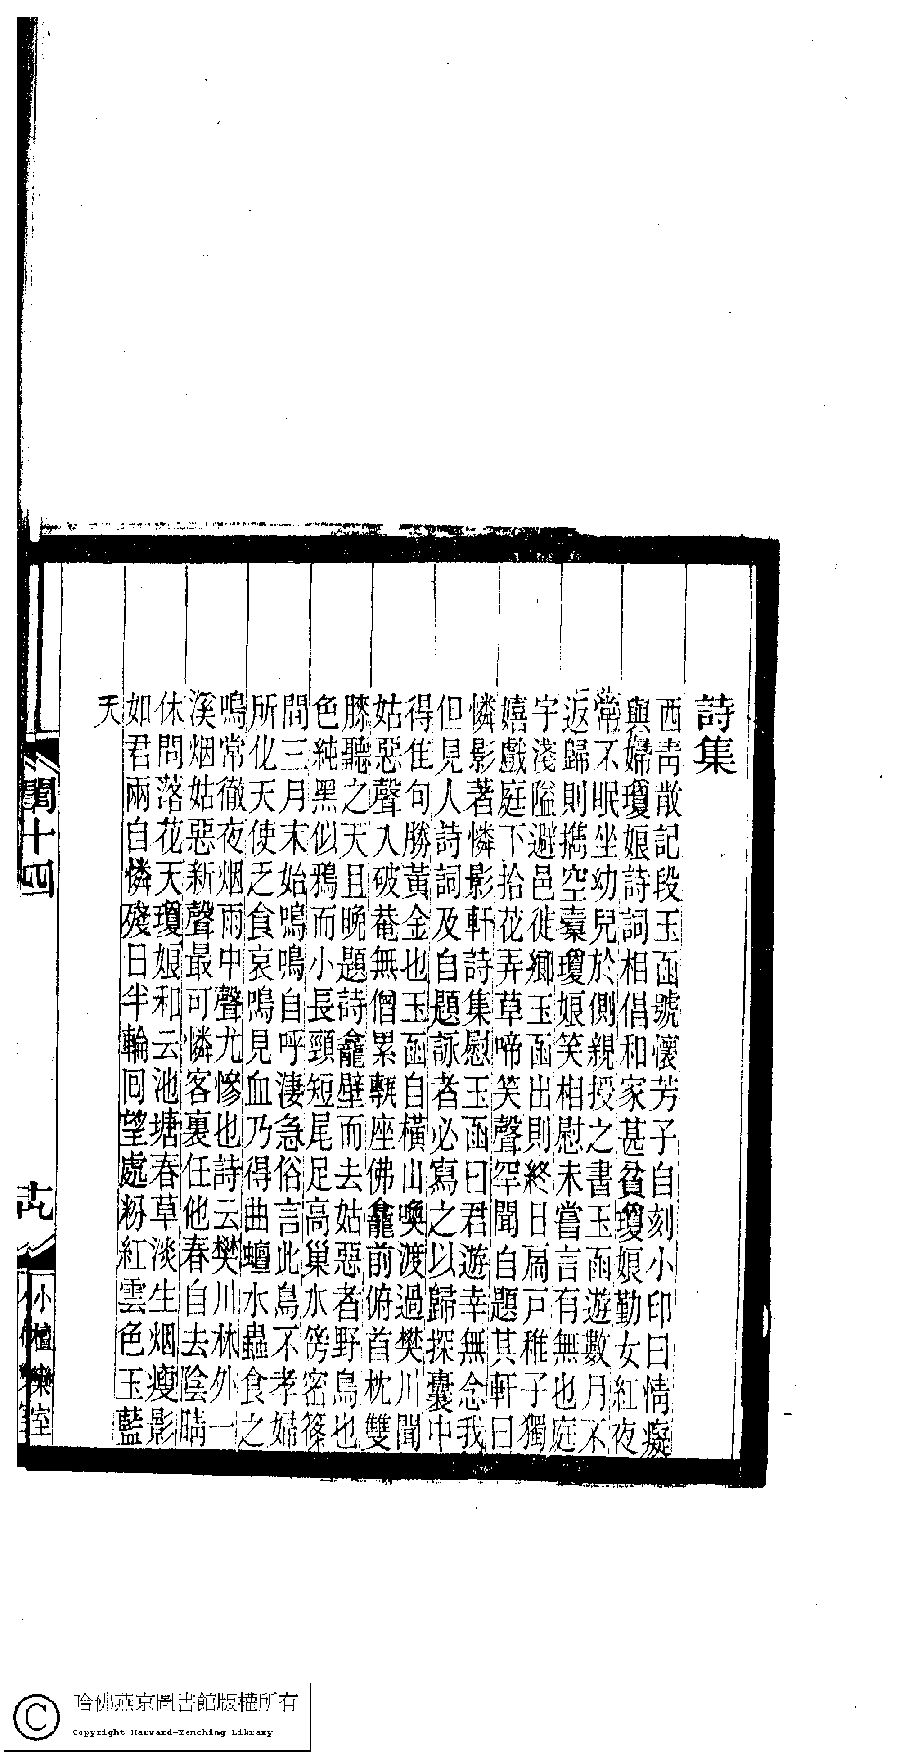 詩集
西青散記段玉函號懷芳子自刻小印曰情癡
與婦瓊娘詩詞相倡和家甚貧瓊娘勤女紅夜
常不眠坐幼兒於側親授之書玉函遊數月不
返歸則擕空囊瓊娘笑相慰未嘗言有無也庭
宇淺隘避邑徙鄉玉函出則終日扃戸稚子獨
嬉戲庭下拾花弄草啼笑聲罕聞自題其軒曰
憐影著憐影軒詩集慰玉函曰君遊幸無念我
但見人詩詞及自題詠者必寫之以歸探囊中
得佳句勝黃金也玉函自橫山喚渡過樊川聞
姑惡聲入破菴無僧累輭座佛龕前俯首枕雙
膝聽之天且晩題詩龕壁而去姑惡者野鳥也
色純黑似鴉而小長頸短尾足高巢水傍密篠
間三月末始鳴鳴自呼淒急俗言此鳥不孝婦
所化天使乏食哀鳴見血乃得曲蟺水蟲食之
鳴常徹夜烟雨中聲尤慘也詩云樊川林外一
溪烟姑惡新聲最可憐客裏任他春自去陰晴
休問落花天瓊娘和云池塘春草淡生烟瘦影
如君兩自憐殘日半輪囘望處粉紅雲色玉藍
天
閨十四
十九
小檀欒室
哈佛燕京圖書館版權所有
Copyright Harvard-Yenching Library